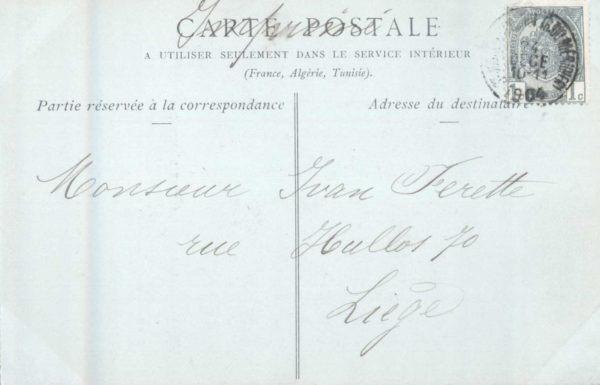 Imprimé
CARTE POSTALE
A UTILISER SEULEMENT DANS LE SERVICE INTÉRIEUR
(France, Algérie, Tunisie).
Partie réservée à la correspondance
Adresse du destinataire
DECE
10-11
1904
1 c
Monsieur Ivan Ferette
rue Hullos 70
Liège